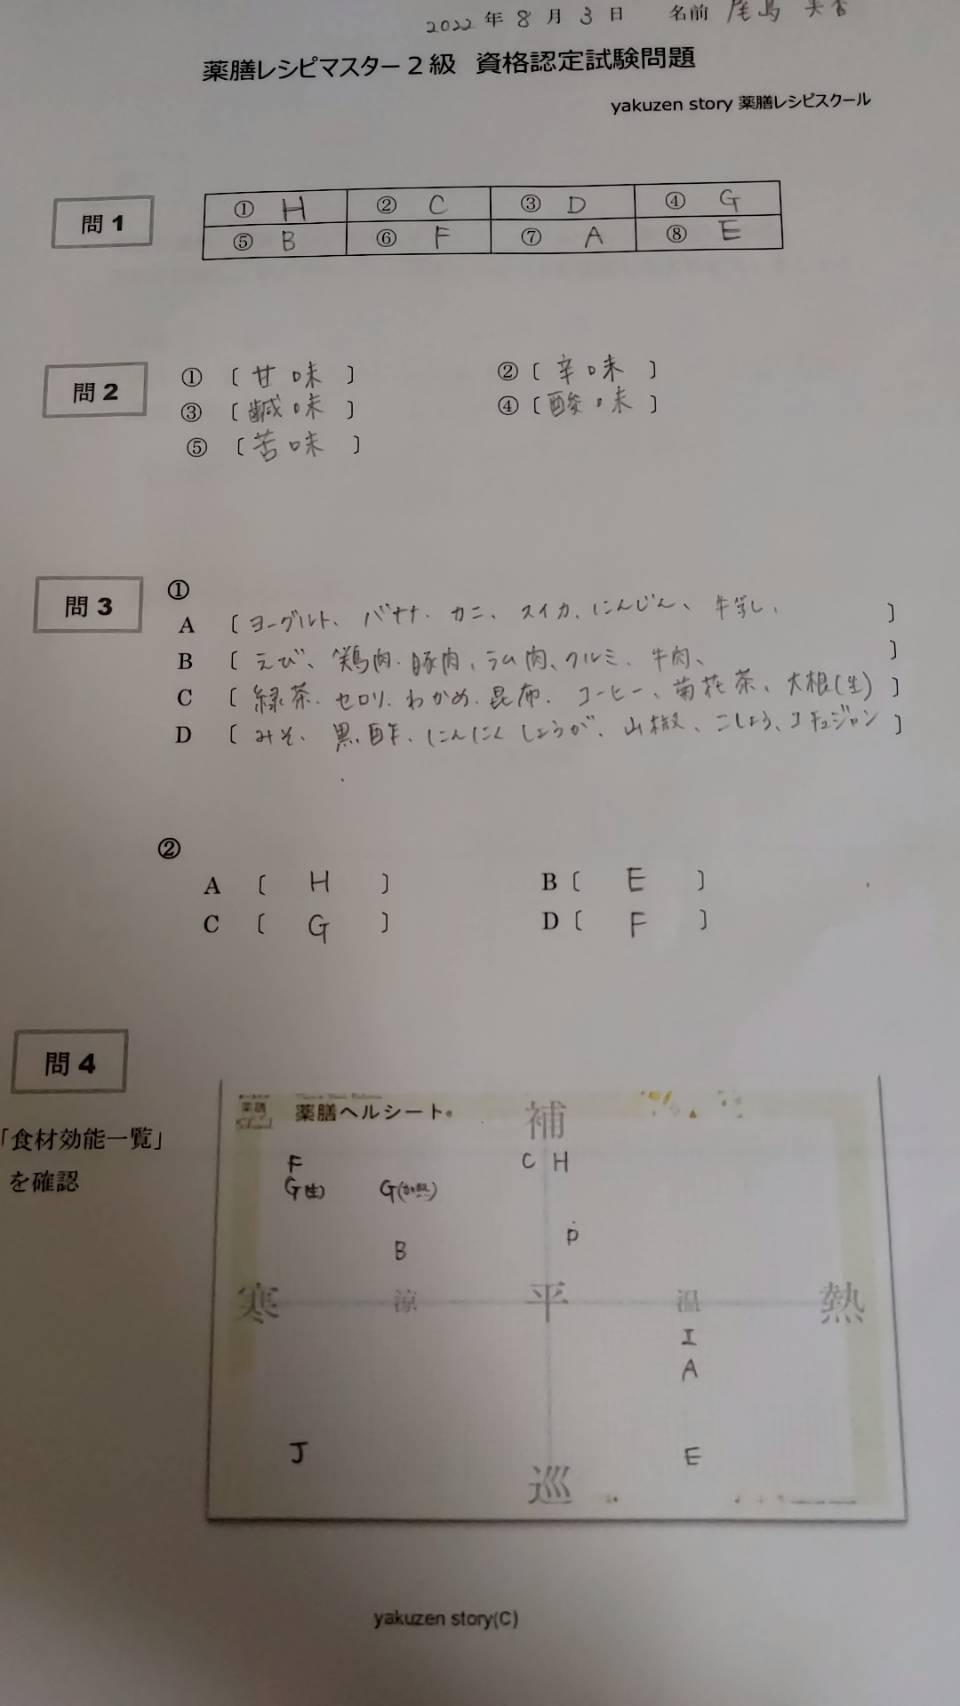 2022年8月3日 名前 尾島
薬膳レシピマスター2級 資格認定試験問題
yakuzen story 薬膳レシピスクール
問1
① H ② C ③ D ④ G
⑤ B ⑥ F ⑦ A ⑧ E
問2
①〔甘味〕 ②〔辛味〕
③〔鹹味〕 ④〔酸味〕
⑤〔苦味〕
問3
①
A〔ヨーグルト、バナナ、カニ、スイカ、にんじん、牛乳、〕
B〔えび、鶏肉、豚肉、ラム肉、クルミ、牛肉、〕
C〔緑茶、セロリ、わかめ、昆布、コーヒー、菊花茶、大根(生)〕
D〔みそ、黒酢、にんにく しょうが、山椒、こしょう、コチュジャン〕
②
A〔H〕 B〔E〕
C〔G〕 D〔F〕
問4
「食材効能一覧」
を確認
薬膳
薬膳ヘルシート®
補
F C H
G(生) G(加熱)
D
B
寒 涼 平 温 熱
I
A
J E
巡
yakuzen story(C)